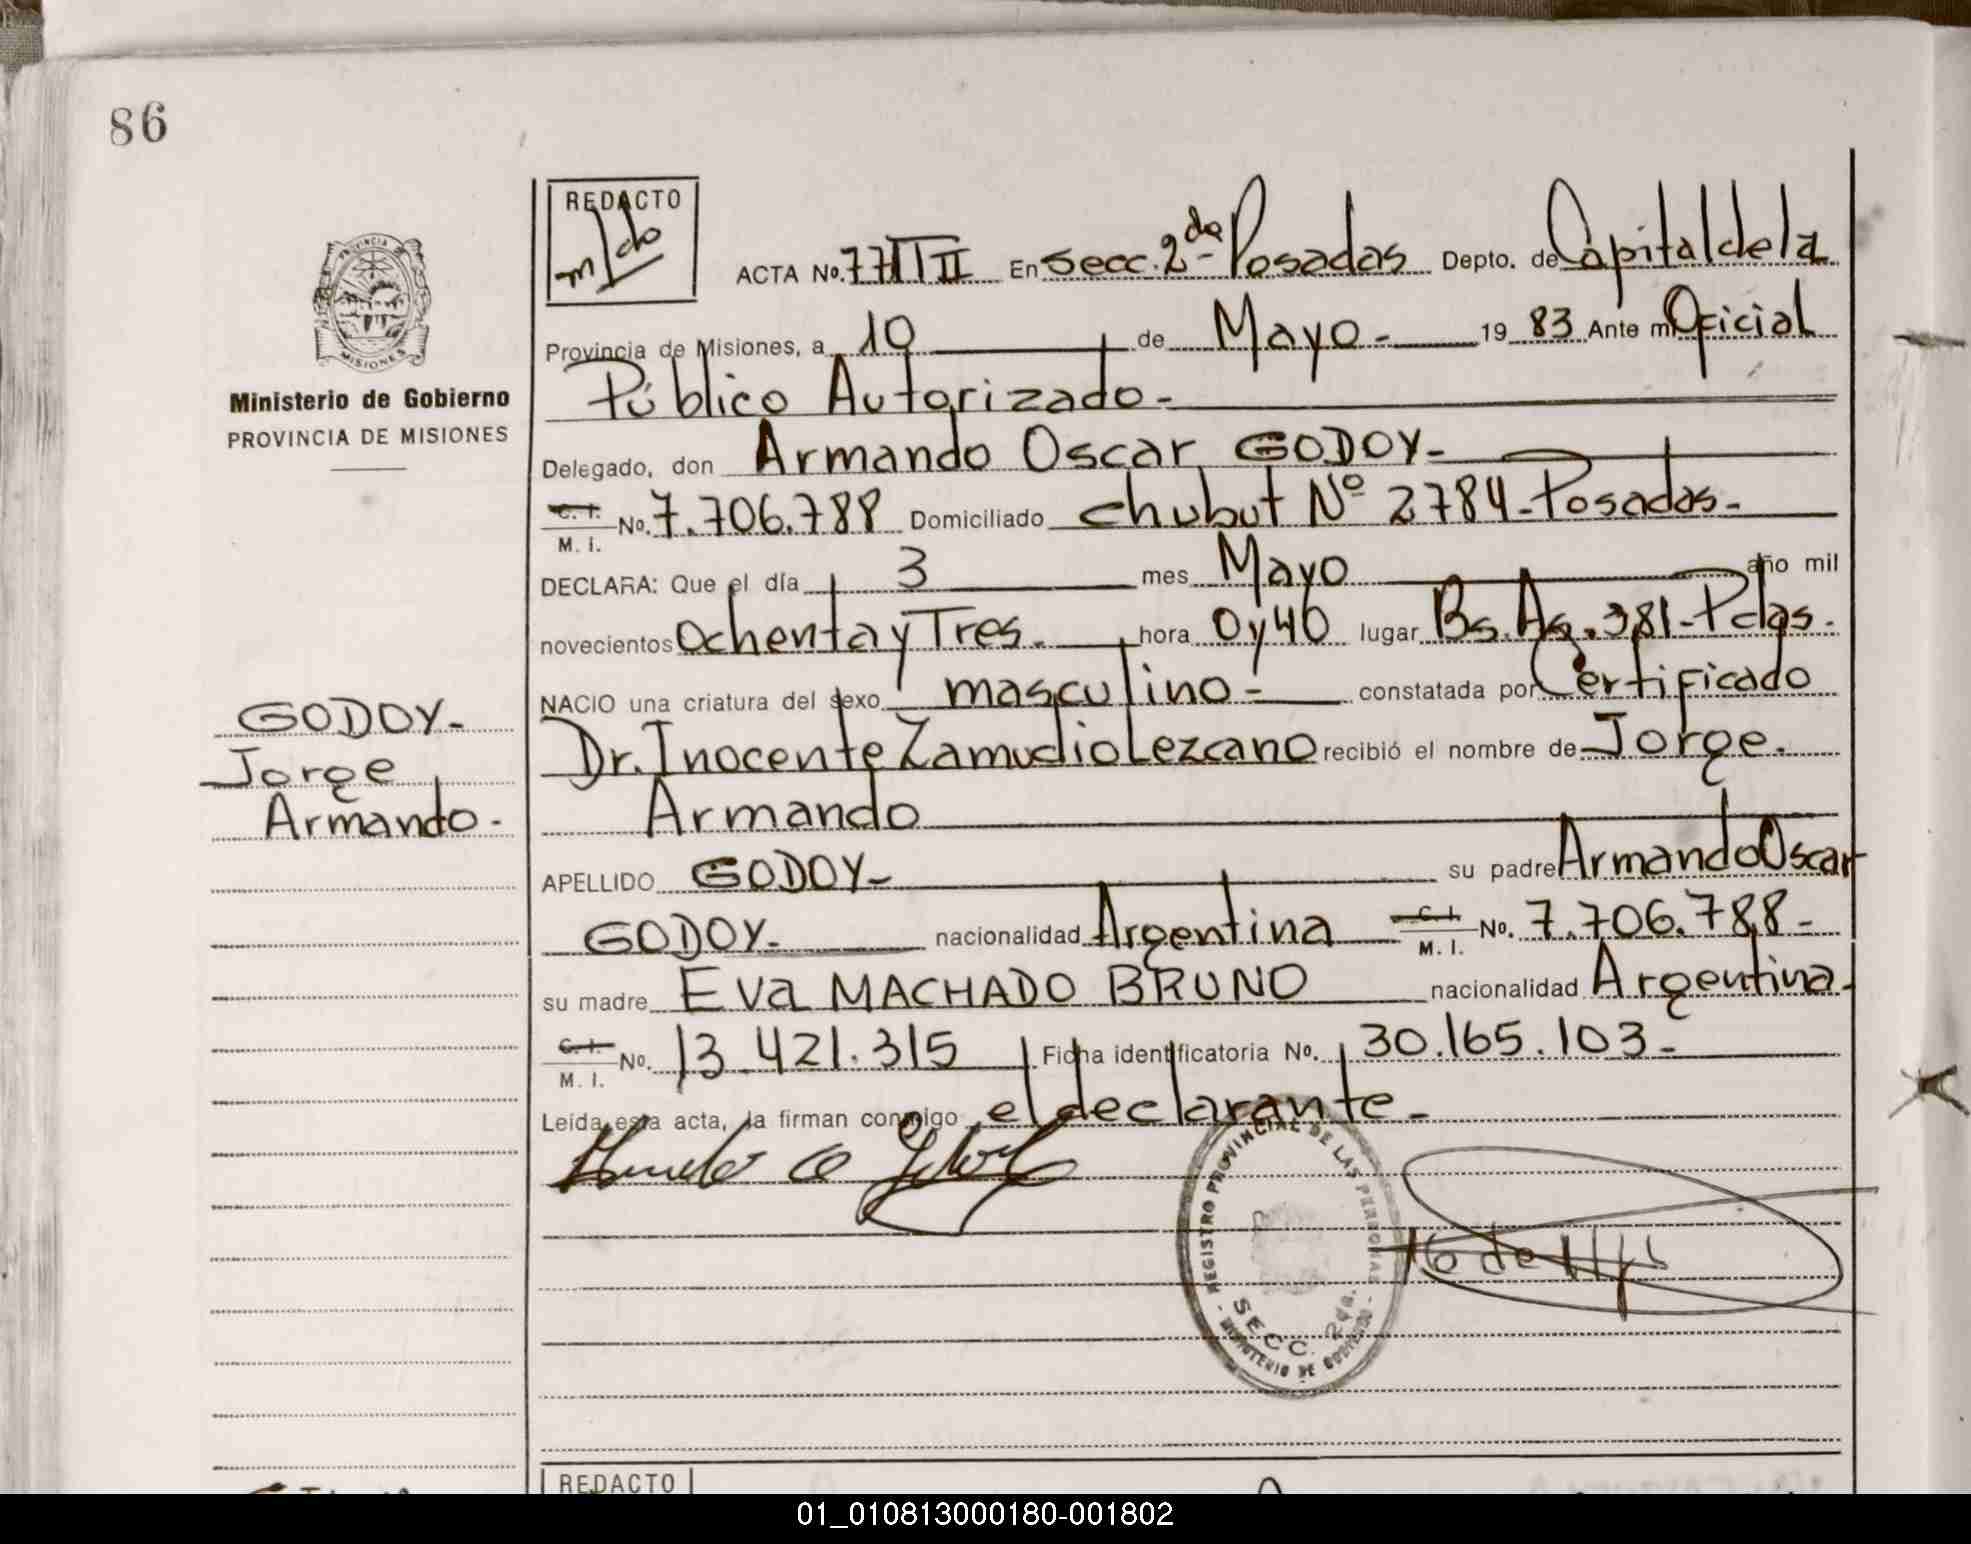 86
REDACTO
PROVINCIA
MISIONES
Ministerio de Gobierno
PROVINCIA DE MISIONES
ACTA No. 77 III En Secc. 2da- Posadas Depto. de Capital de la
Provincia de Misiones, a 10 de Mayo- 19 83 Ante mi Oficial
Público Autorizado-
Delegado, don Armando Oscar GODOY-
C. I. No. 7.706.788 Domiciliado chubut Nº 2784-Posadas-
M. I.
DECLARA: Que el día 3 mes Mayo año mil
novecientos Ochenta y Tres. hora 0 y 40 lugar Bs. As. 381-Pdas.
NACIO una criatura del sexo masculino- constatada por Certificado
Dr. Inocente Zamudio Lezcano recibió el nombre de Jorge.
Armando
GODOY-
Jorge
Armando-
APELLIDO GODOY- su padre Armando Oscar
GODOY- nacionalidad Argentina C. I. No. 7.706.788-
M. I.
su madre Eva MACHADO BRUNO nacionalidad Argentina-
C. I. No. 13.421.315 Ficha identificatoria No. 30.165.103-
M. I.
Leída esta acta, la firman conmigo el declarante-
REGISTRO PROVINCIAL DE LAS PERSONAS
SECC. 2da.
MINISTERIO DE GOBIERNO
REDACTO
01_010813000180-001802